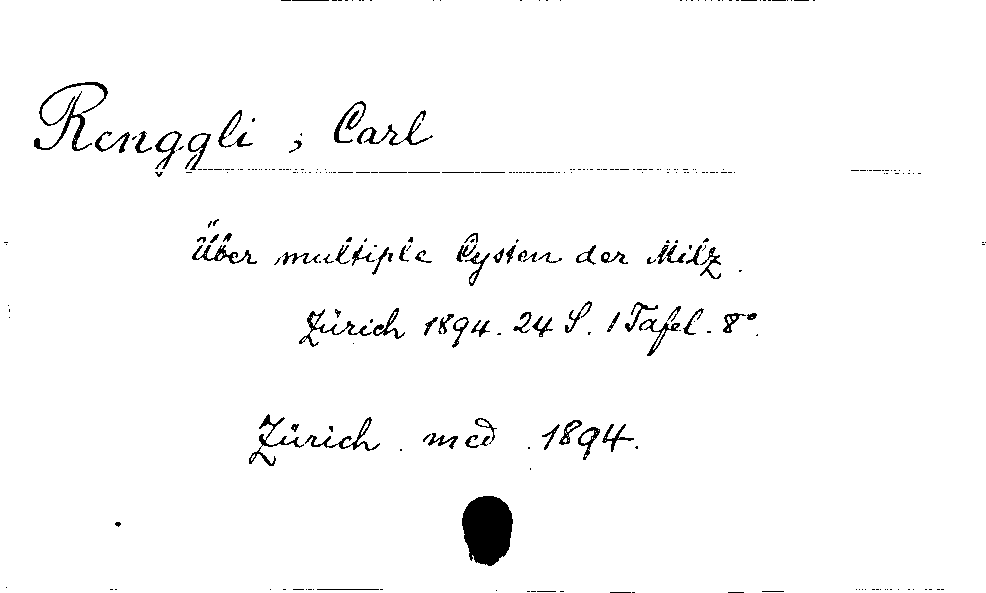 Renggli, Carl
Über multiple Cysten der Milz.
Zürich 1894. 24 S. 1 Tafel. 8°.
Zürich. med. 1894.